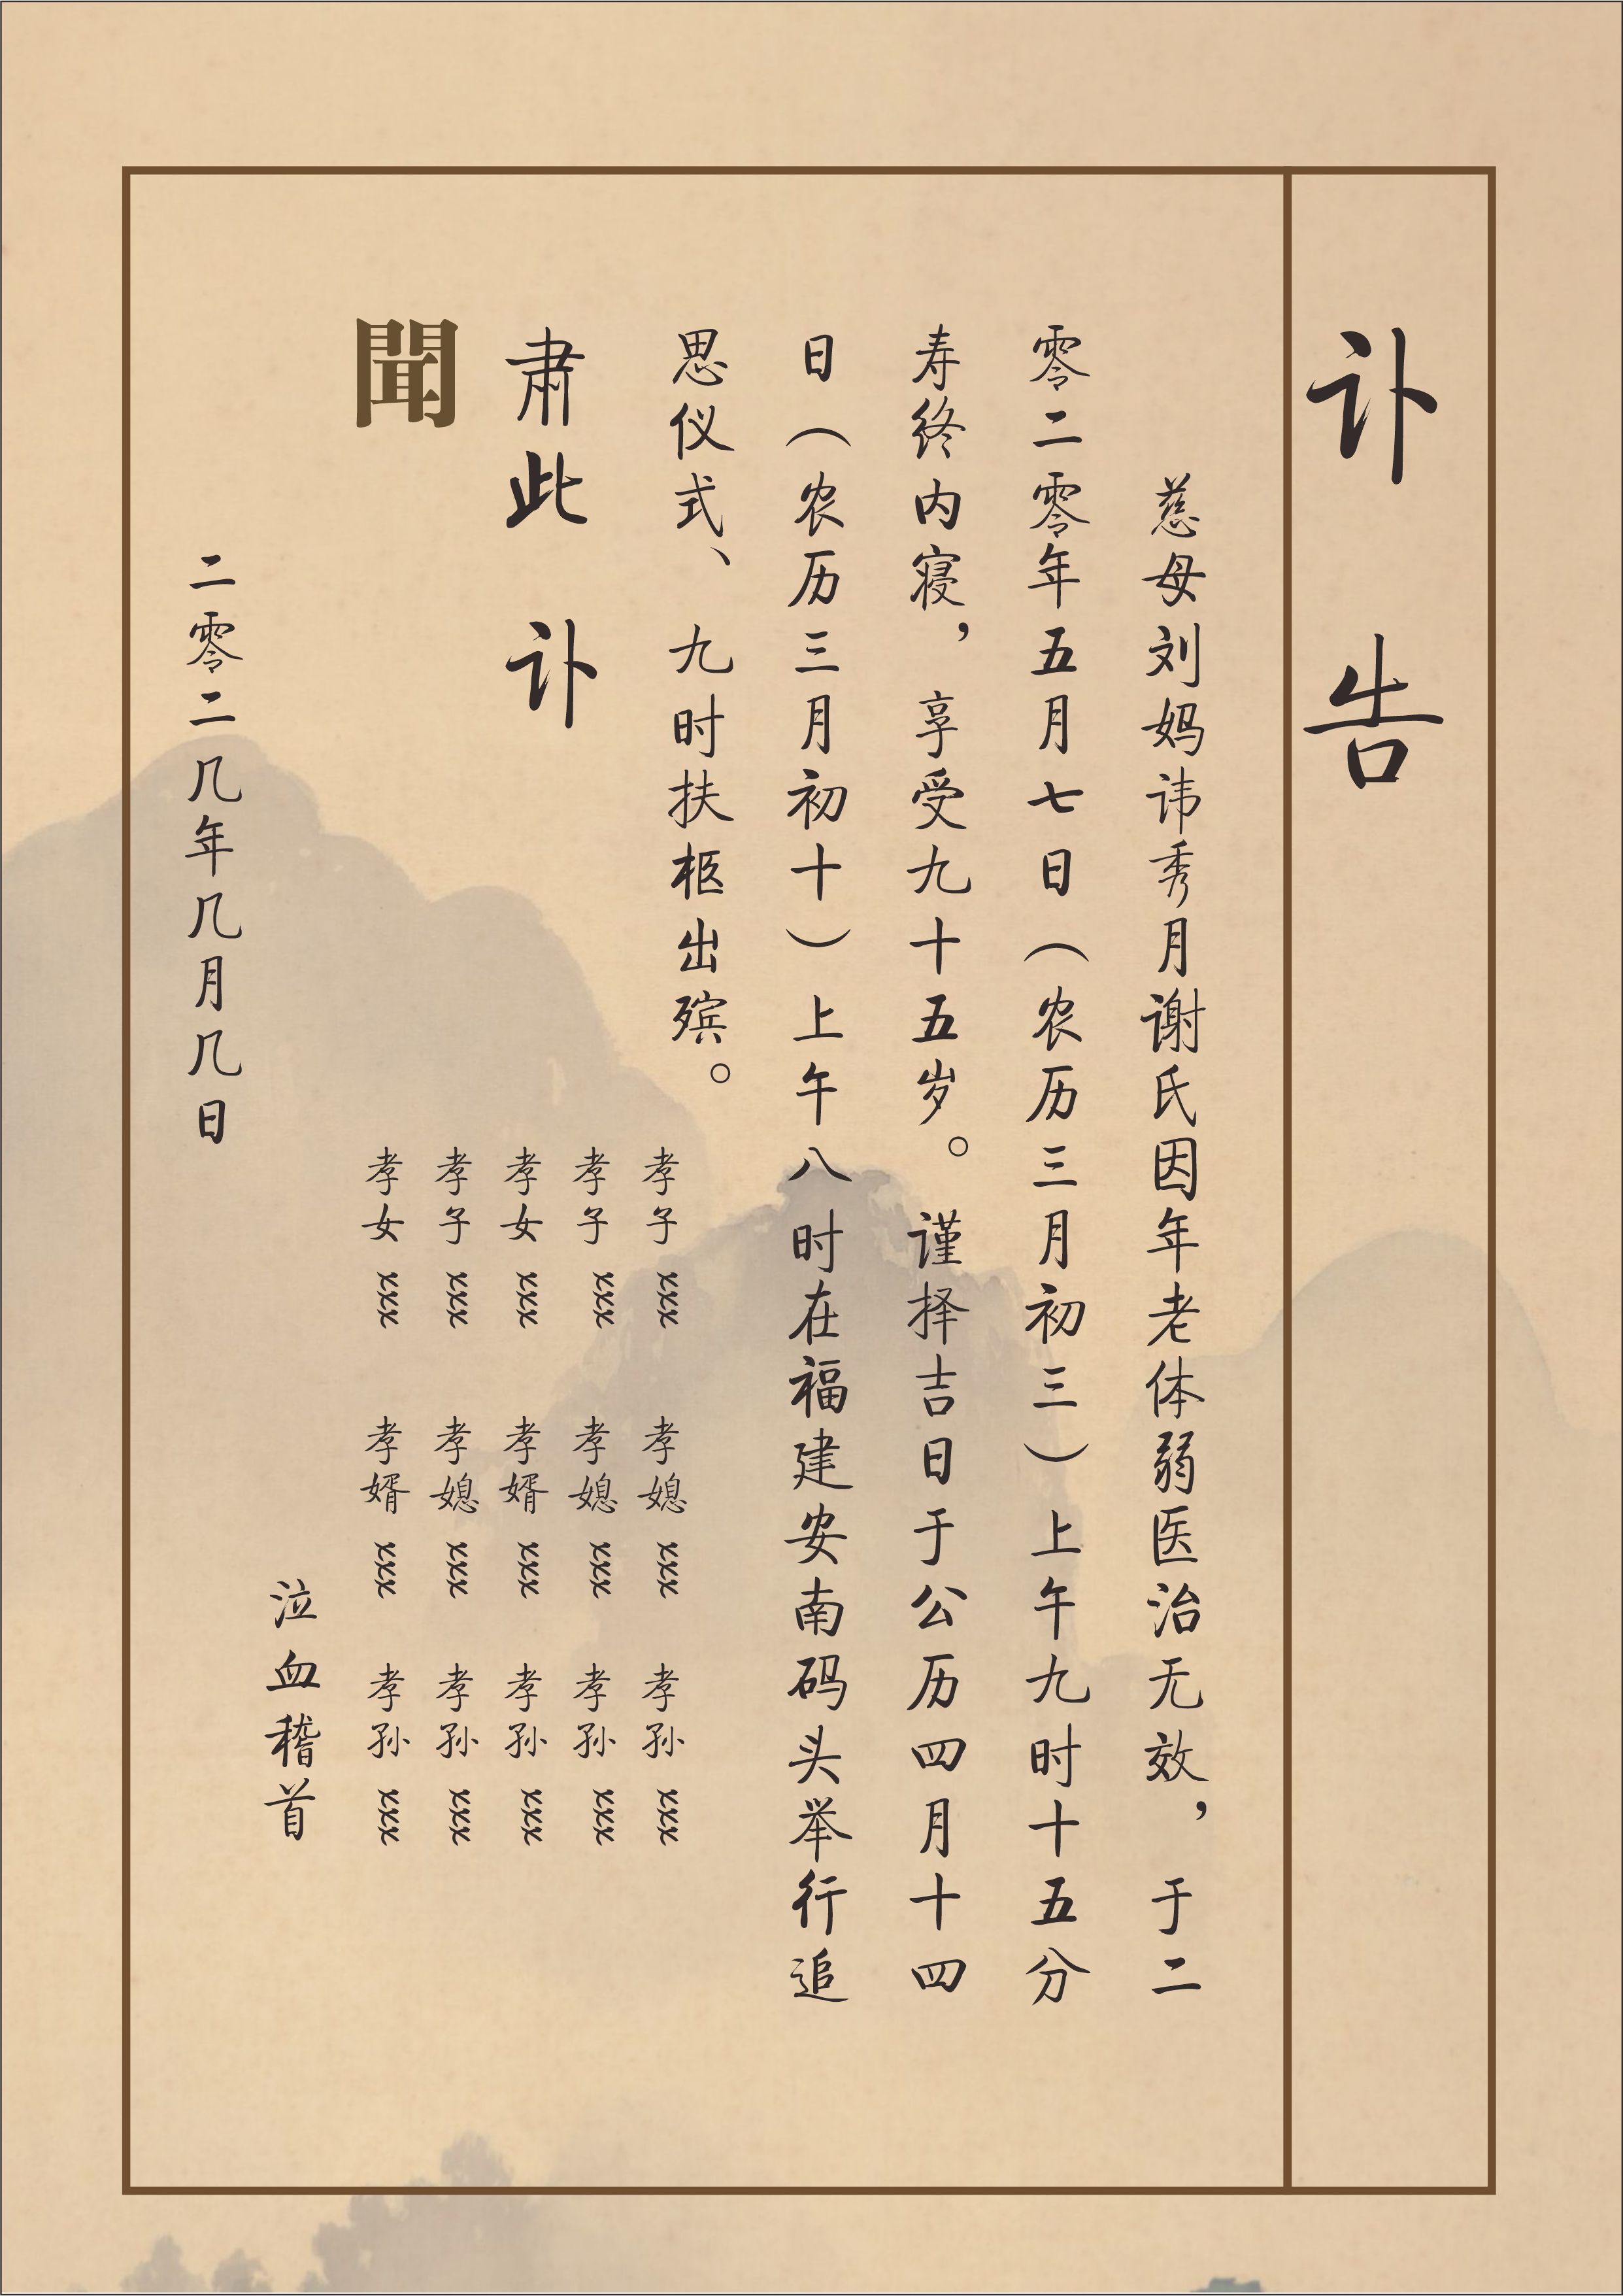 讣告
慈母刘妈讳秀月谢氏因年老体弱医治无效，于二
零二零年五月七日（农历三月初三）上午九时十五分
寿终内寝，享受九十五岁。谨择吉日于公历四月十四
日（农历三月初十）上午八时在福建安南码头举行追
思仪式、九时扶柩出殡。
肃此 讣
聞
孝子xxx 孝媳xxx 孝孙xxx
孝子xxx 孝媳xxx 孝孙xxx
孝女xxx 孝婿xxx 孝孙xxx
孝子xxx 孝媳xxx 孝孙xxx
孝女xxx 孝婿xxx 孝孙xxx
泣血稽首
二零二几年几月几日